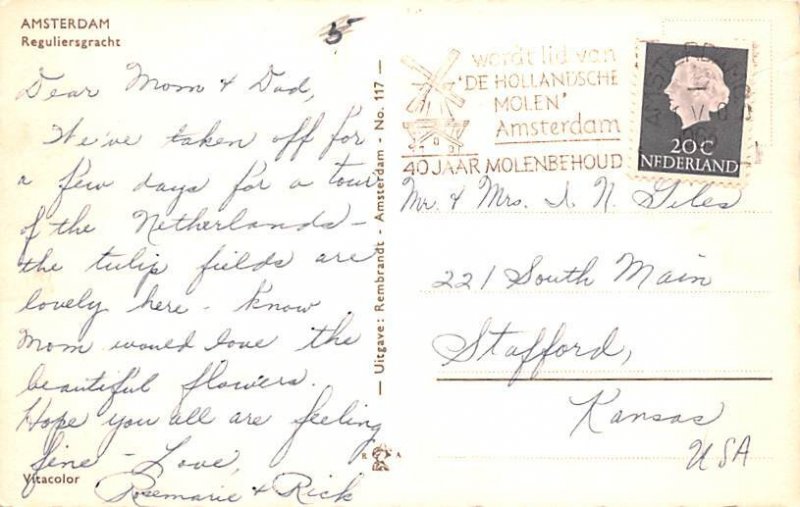 AMSTERDAM
Reguliersgracht
5
Dear Mom & Dad,
We've taken off for
a few days for a tour
of the Netherlands -
the tulip fields are
lovely here - Know
Mom would love the
beautiful flowers.
Hope you all are feeling
fine - Love,
Rosemarie & Rick
Vitacolor
— Uitgave: Rembrandt - Amsterdam - No. 117 —
R A
wordt lid van
'DE HOLLANDSCHE
MOLEN'
Amsterdam
40 JAAR MOLENBEHOUD
20 C
NEDERLAND
Mr. & Mrs. I. N. Giles
221 South Main
Stafford,
Kansas
USA